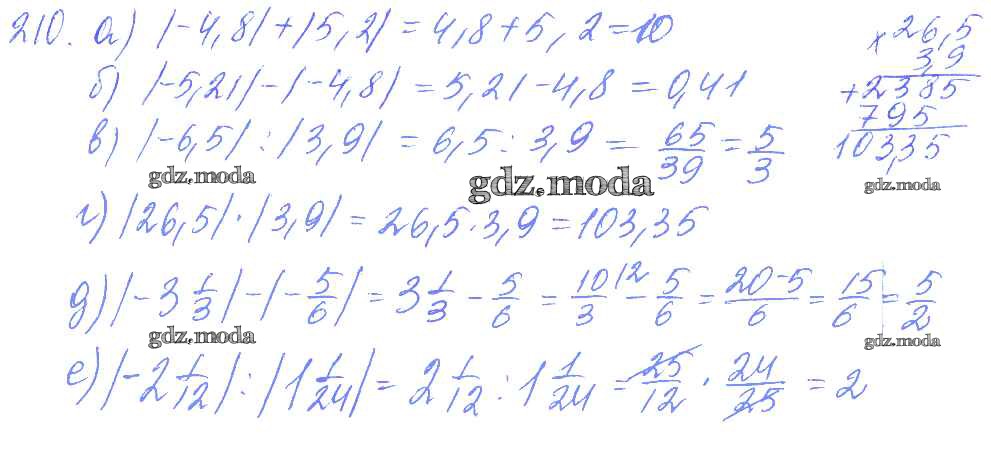 210. а) |-4,8|+|5,2| = 4,8+5,2=10
б) |-5,21|-|-4,8| = 5,21-4,8 = 0,41
в) |-6,5| : |3,9| = 6,5 : 3,9 = 65/39 = 5/3
г) |26,5| · |3,9| = 26,5 · 3,9 = 103,35
× 26,5
3,9
+ 2385
795
103,35
д) |-3 1/3|-|-5/6| = 3 1/3 - 5/6 = 10/3 |2 - 5/6 = 20-5/6 = 15/6 = 5/2
е) |-2 1/12| : |1 1/24| = 2 1/12 : 1 1/24 = 25/12 · 24/25 = 2
gdz.moda
gdz.moda
gdz.moda
gdz.moda
gdz.moda